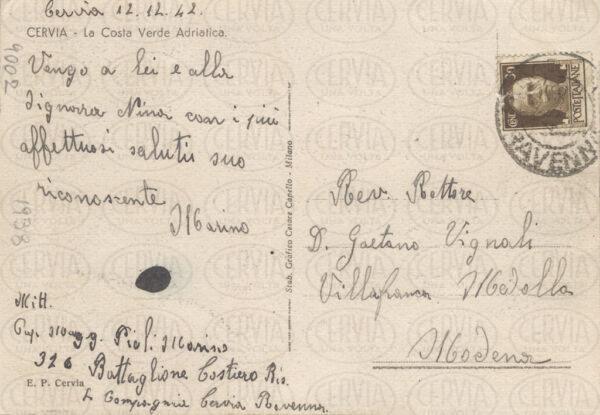 Cervia 12.12.42.
CERVIA - La Costa Verde Adriatica.
Vengo a lei e alla
signora Nina coi i più
affettuosi saluti suo
riconoscente
Marino
9002
1938
Mitt.
Pioli Marino
326 Battaglione Costiero Bis.
Compagnia Cervia Ravenna.
E. P. Cervia
Stab. Grafico Cesare Capello - Milano
POSTE ITALIANE
RAVENNA
Rev. Rettore
D. Gaetano Vignali
Villafranca Medolla
Modena
CERVIA